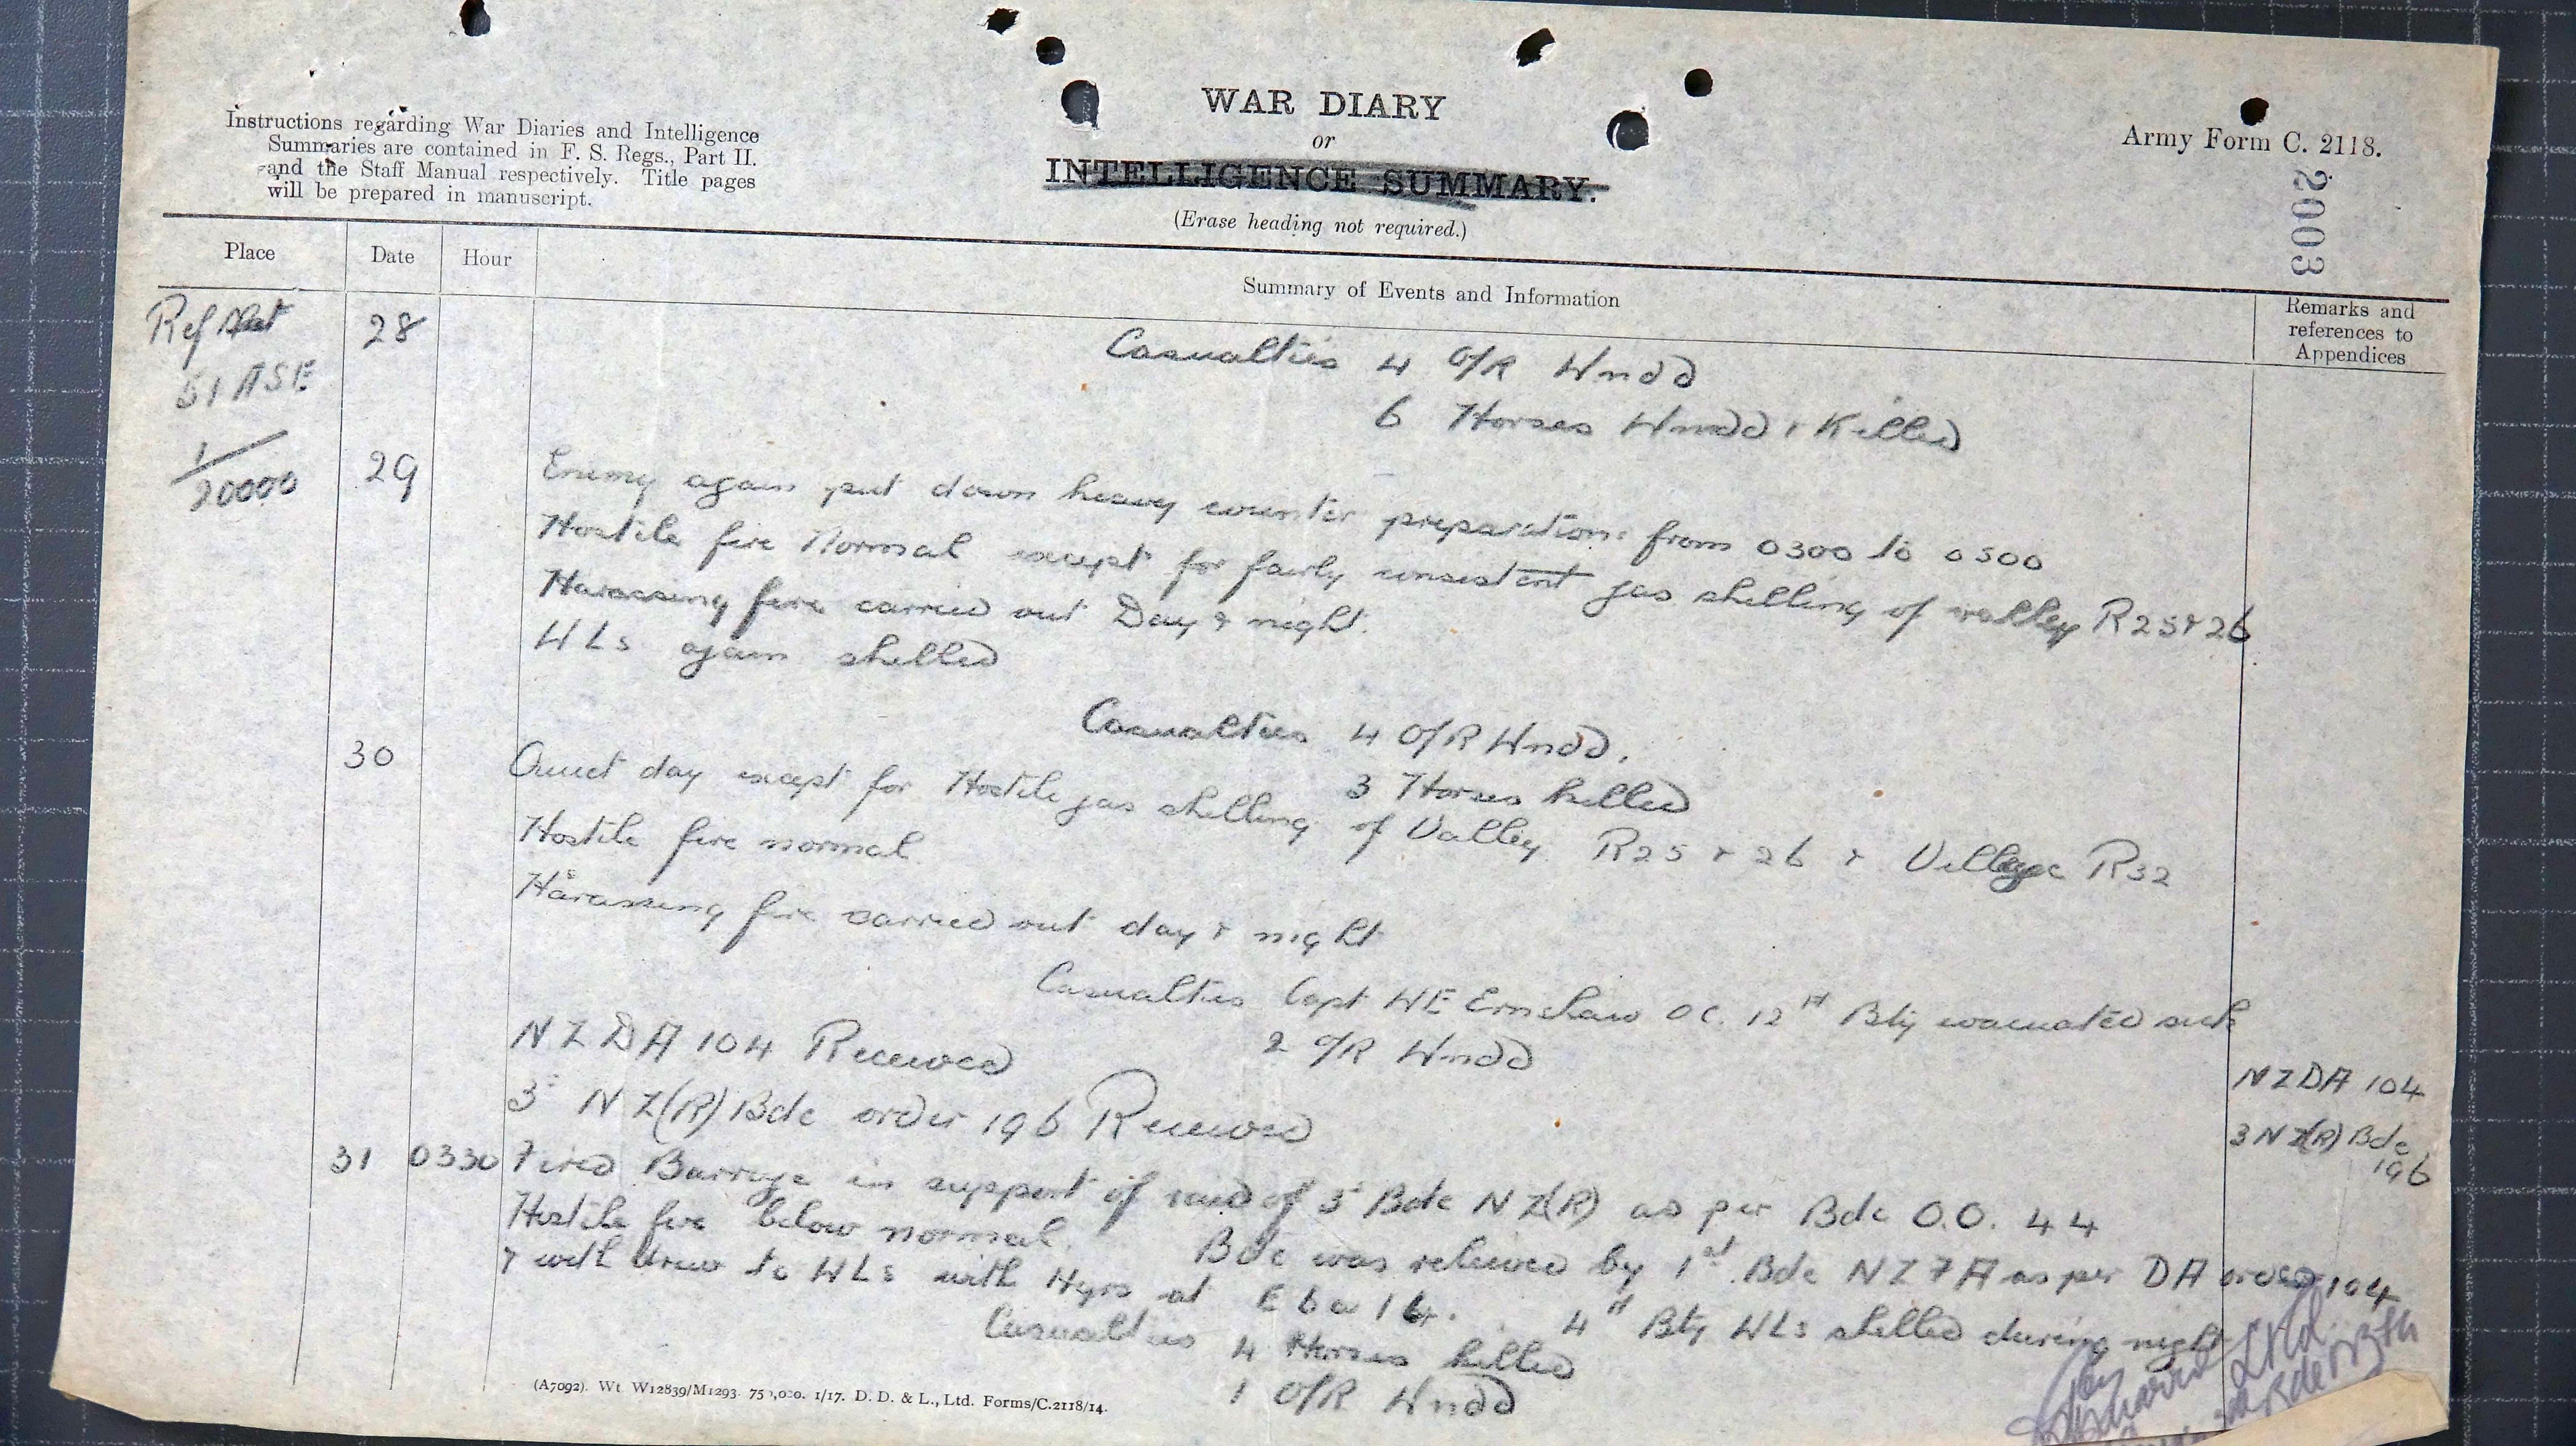 Instructions regarding War Diaries and Intelligence
Summaries are contained in F. S. Regs., Part II.
and the Staff Manual respectively. Title pages
will be prepared in manuscript.
WAR DIARY
or
INTELLIGENCE SUMMARY.
(Erase heading not required.)
Army Form C. 2118.
2003
Place Date Hour Summary of Events and Information Remarks and
references to
Appendices
Ref Sheet 28 Casualties 4 O/R Wndd
51 A SE 6 Horses Wndd & Killed
1/20000 29 Enemy again put down heavy counter preparation from 0300 to 0500
Hostile fire Normal except for fairly consistent gas shelling of valley R25 & 26
Harassing fire carried out Day & night.
WLs again shelled
Casualties 4 O/R Wndd.
3 Horses killed
30 Quiet day except for Hostile gas shelling of Valley R25 & 26 & Village R32
Hostile fire normal
Harassing fire carried out day & night
Casualties Capt WE Earnshaw OC. 12th Bty evacuated sick
2 O/R Wndd
NZDA 104 Received NZDA 104
3 NZ(R) Bde order 196 Received 3 NZ(R) Bde
196
31 0330 Fired Barrage in support of raid of 3 Bde NZ(R) as per Bde O.O. 44
Hostile fire below normal. Bde was relieved by 1st Bde NZFA as per DA order 104
& withdrew to WLs with Hqrs at E6a14. 4th Bty WLs shelled during night
Casualties 4 Horses killed
1 O/R Wndd
Lt Col.
(A7092). Wt. W12839/M1293. 750,000. 1/17. D. D. & L., Ltd. Forms/C.2118/14.